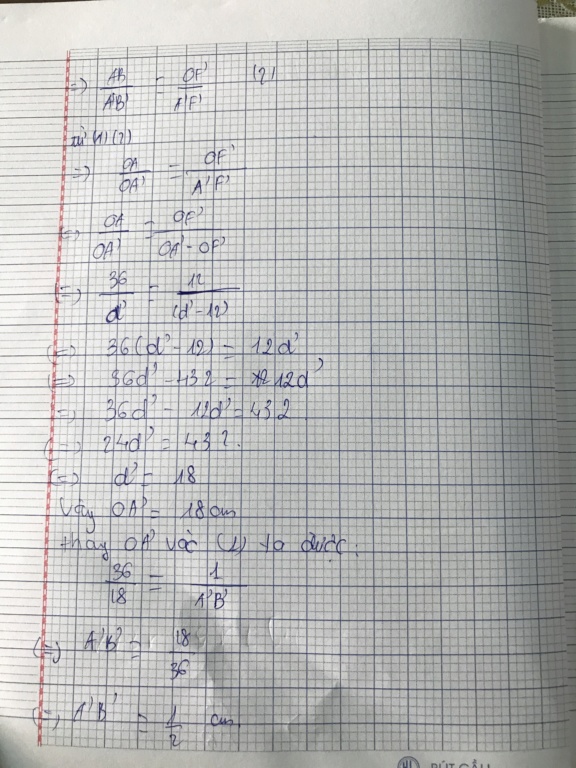 => AB/A'B' = OF'/A'F' (2)
từ (1) (2)
=> OA/OA' = OF'/A'F'
<=> OA/OA' = OF'/OA'-OF'
<=> 36/d' = 12/(d'-12)
<=> 36(d'-12) = 12d'
<=> 36d' - 432 = 12d'
=> 36d' - 12d' = 432
<=> 24d' = 432.
<=> d' = 18
Vậy OA' = 18cm
thay OA' vào (1) ta được:
36/18 = 1/A'B'
<=> A'B' = 18/36
<=> A'B' = 1/2 cm